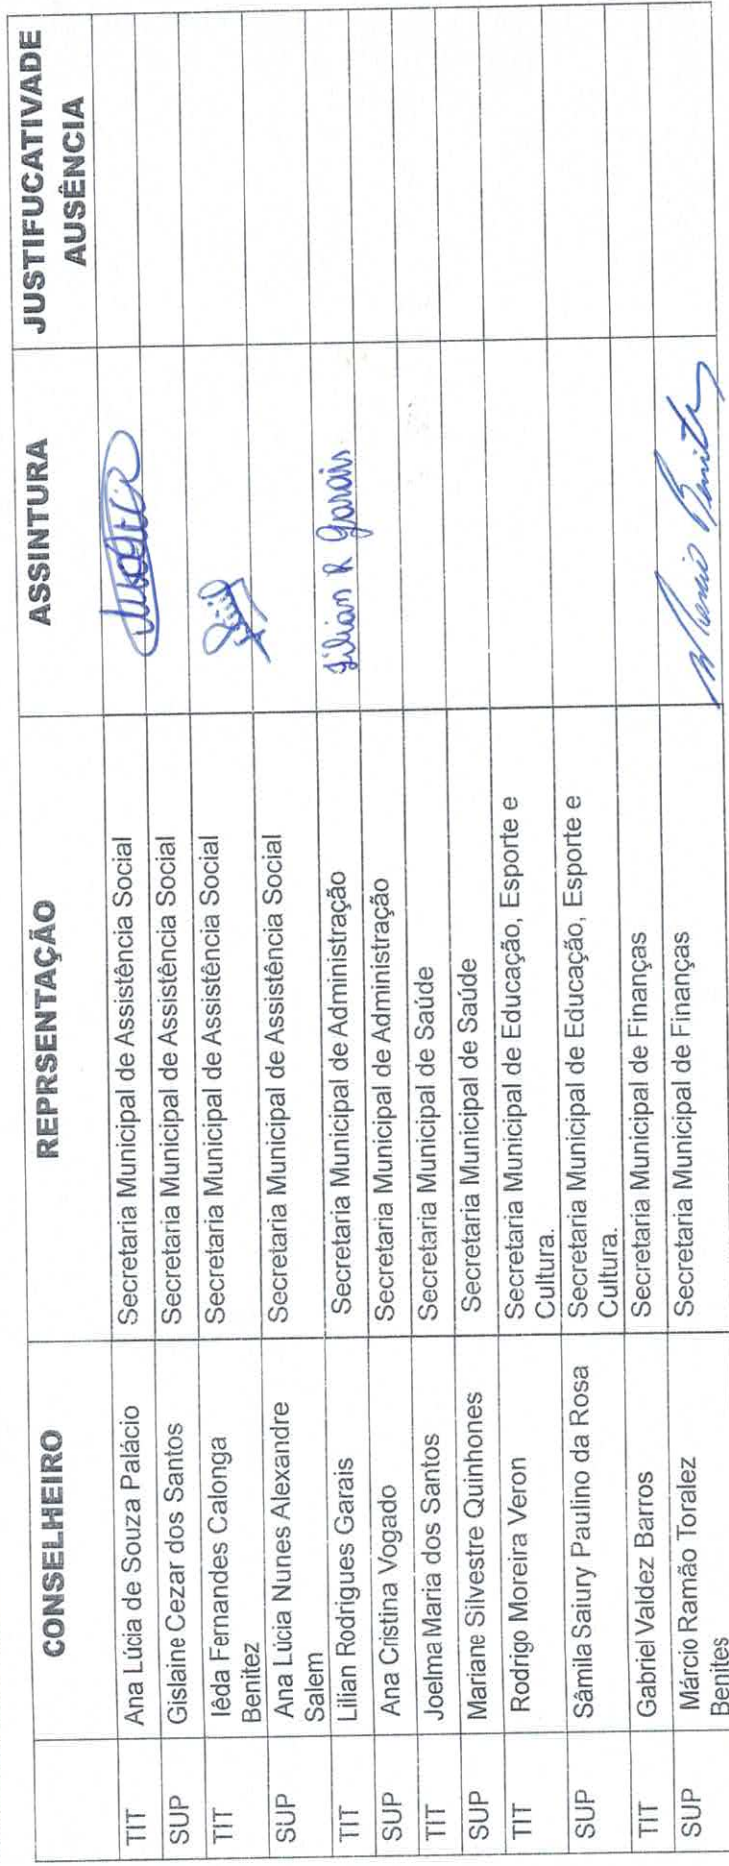 CONSELHEIRO REPRSENTAÇÃO ASSINTURA JUSTIFUCATIVADE
AUSÊNCIA
TIT Ana Lúcia de Souza Palácio Secretaria Municipal de Assistência Social
SUP Gislaine Cezar dos Santos Secretaria Municipal de Assistência Social
TIT Iêda Fernandes Calonga Secretaria Municipal de Assistência Social
Benitez
SUP Ana Lúcia Nunes Alexandre Secretaria Municipal de Assistência Social
Salem
TIT Lilian Rodrigues Garais Secretaria Municipal de Administração Lilian R Garais
SUP Ana Cristina Vogado Secretaria Municipal de Administração
TIT Joelma Maria dos Santos Secretaria Municipal de Saúde
SUP Mariane Silvestre Quinhones Secretaria Municipal de Saúde
TIT Rodrigo Moreira Veron Secretaria Municipal de Educação, Esporte e
Cultura.
SUP Sâmila Saiury Paulino da Rosa Secretaria Municipal de Educação, Esporte e
Cultura.
TIT Gabriel Valdez Barros Secretaria Municipal de Finanças
SUP Márcio Ramão Toralez Secretaria Municipal de Finanças
Benites